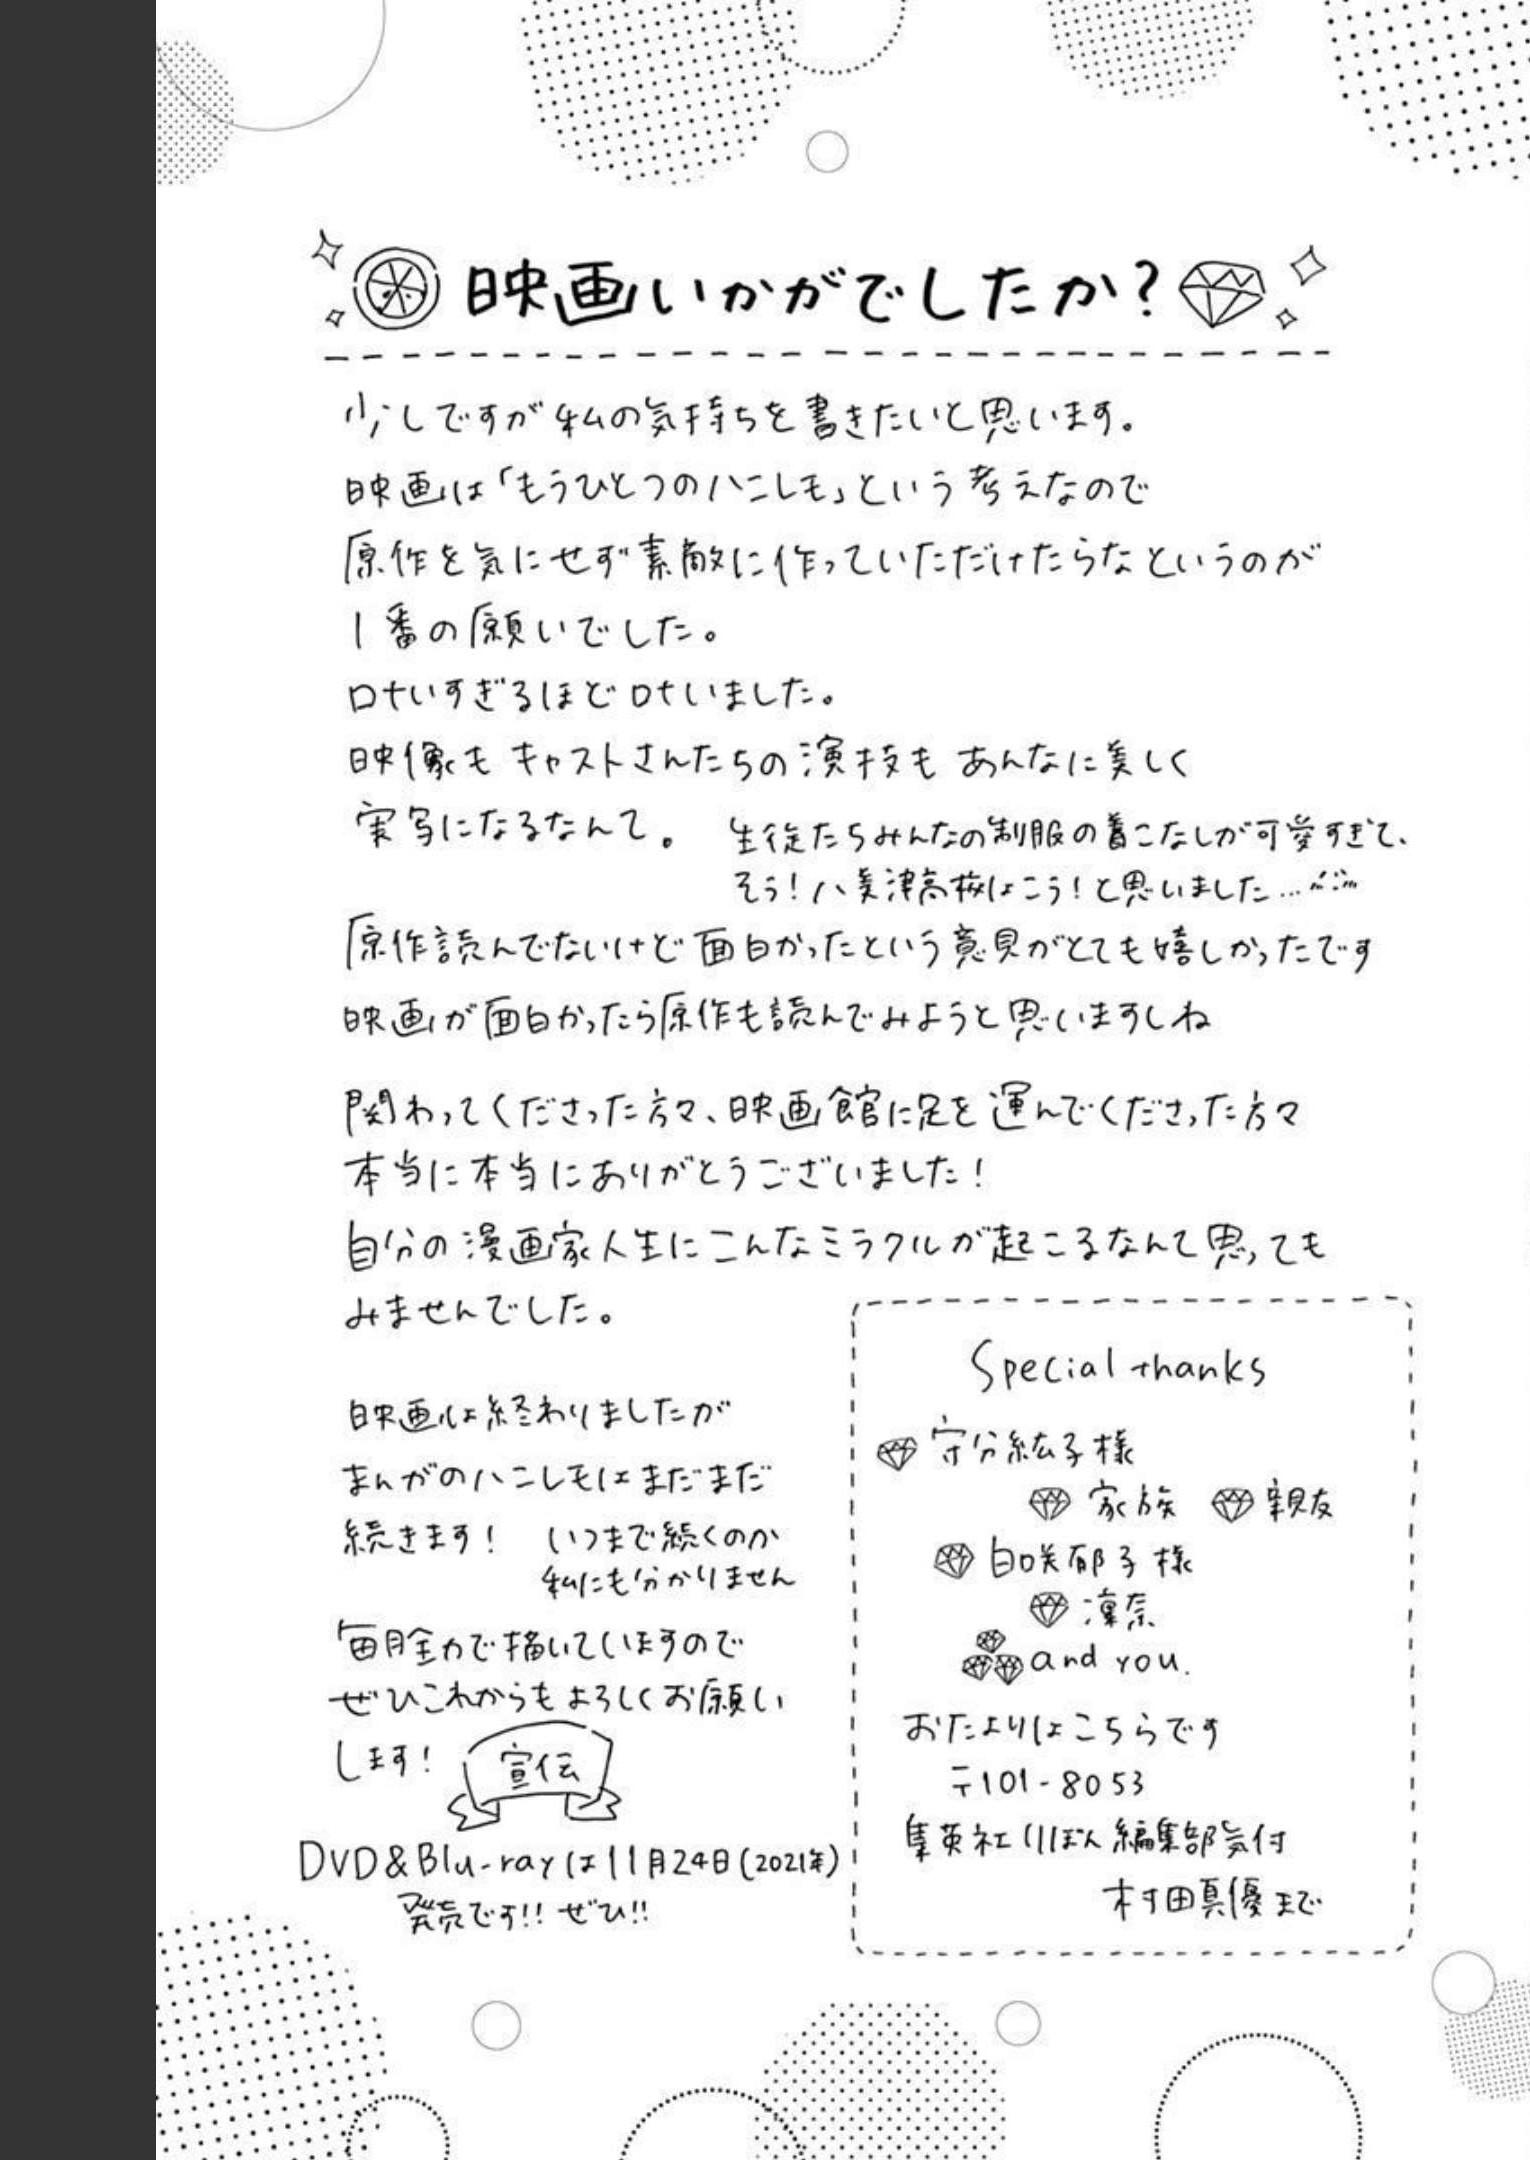 映画いかがでしたか?
少しですが私の気持ちを書きたいと思います。
映画は「もうひとつのハニレモ」という考えなので
原作を気にせず素敵に作っていただけたらなというのが
1番の願いでした。
叶いすぎるほど叶いました。
映像もキャストさんたちの演技もあんなに美しく
実写になるなんて。
生徒たちみんなの制服の着こなしが可愛すぎて、
そう!八美津高校はこう!と思いました…
原作読んでないけど面白かったという意見がとても嬉しかったです
映画が面白かったら原作も読んでみようと思いますしね
関わってくださった方々、映画館に足を運んでくださった方々
本当に本当にありがとうございました!
自分の漫画家人生にこんなミラクルが起こるなんて思っても
みませんでした。
映画は終わりましたが
まんがのハニレモはまだまだ
続きます!
いつまで続くのか
私にも分かりません
毎月全力で描いていますので
ぜひこれからもよろしくお願い
します!
宣伝
DVD&Blu-rayは11月24日(2021年)
発売です!!ぜひ!!
Special thanks
守分紘子様
家族 親友
白咲郁子様
凜奈
and you.
おたよりはこちらです
〒101-8053
集英社りぼん編集部気付
村田真優まで